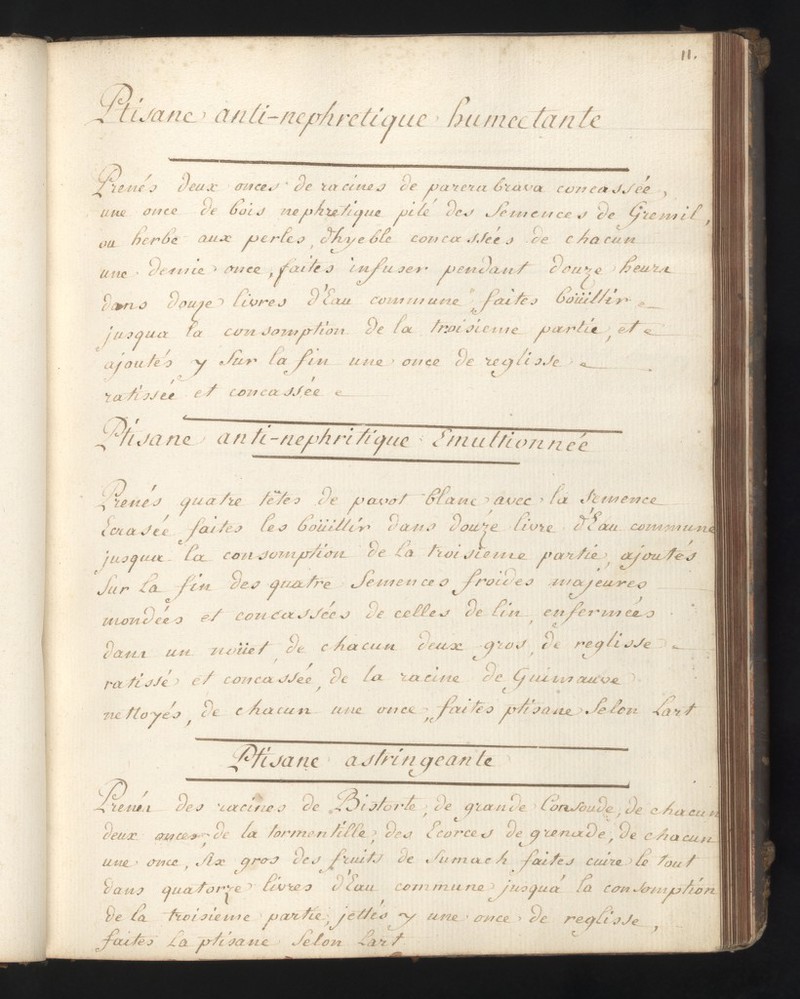 11.
Ptisane anti-nephretique humectante
Prenés deux onces de racines de parerabrava concassée,
une once de bois nephretique pilé des Semences de Gremil,
ou herbe aux perles, d'hyeble concassées de chacun
une demie once, faites infuser pendant douze heurs
dans douze livres d'Eau commune faites boüillir
jusqua la consomption de la troisieme partie, et
ajoutés y Sur la fin une once de reglisse
ratissée et concassée
Ptisane anti-nephritique Emultionnée
Prenés quatre têtes de pavot blanc avec la Semence
Ecrasée faites les boüillir dans douze livre d'Eau commune
jusqua la consomption de la troisieme partie, ajoutés
Sur La fin des quatre Semences froides majeures
mondées et concassées de celles de lin, enfermées
dans un noüet, de chacun deux gros, de reglisse
ratissé et concassée, de la racine de Guimauve
nettoyés, de chacun une once, faites ptisane Selon Lart
Ptisane astringeante
Prenés des racines de Bistorte, de grande Consoude, de chacun
deux onces, de la tormentille, des Ecorces de grenade, de chacun
une once, Six gros des fruits de Sumach faites cuire le tout
dans quatorze livres d'Eau commune jusquá la consomption
de la troisieme partie, jettés y une once de reglisse,
faites La ptisane Selon Lart